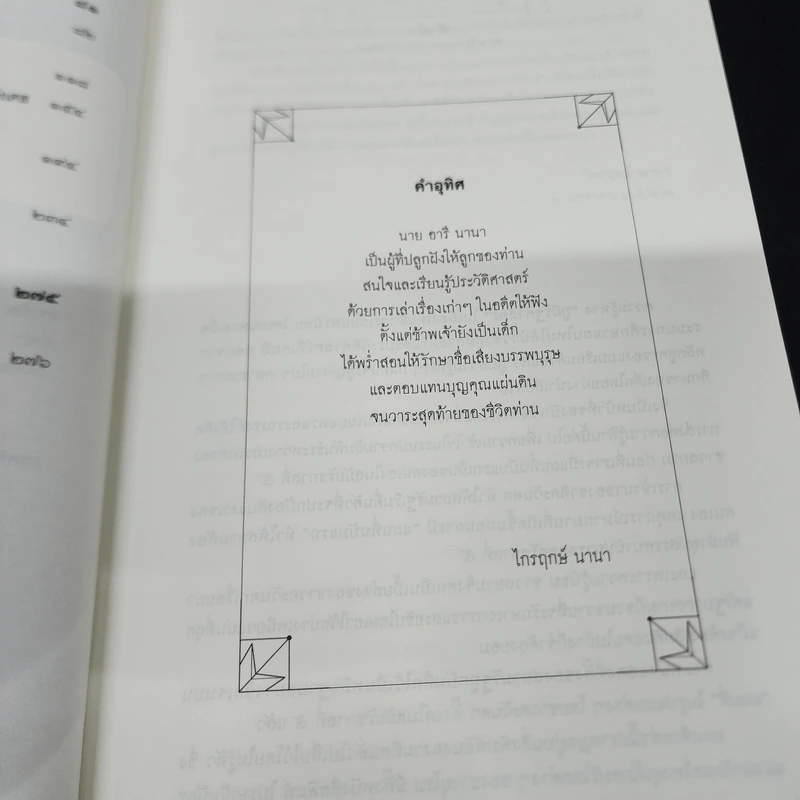 ๘๒
๑๑๘
๑๕๔
๑๙๔
๒๓๔
๒๗๕
๒๗๖
คำอุทิศ
นาย อารี นานา
เป็นผู้ที่ปลูกฝังให้ลูกของท่าน
สนใจและเรียนรู้ประวัติศาสตร์
ด้วยการเล่าเรื่องเก่าๆ ในอดีตให้ฟัง
ตั้งแต่ข้าพเจ้ายังเป็นเด็ก
ได้พร่ำสอนให้รักษาชื่อเสียงบรรพบุรุษ
และตอบแทนบุญคุณแผ่นดิน
จนวาระสุดท้ายของชีวิตท่าน
ไกรฤกษ์ นานา